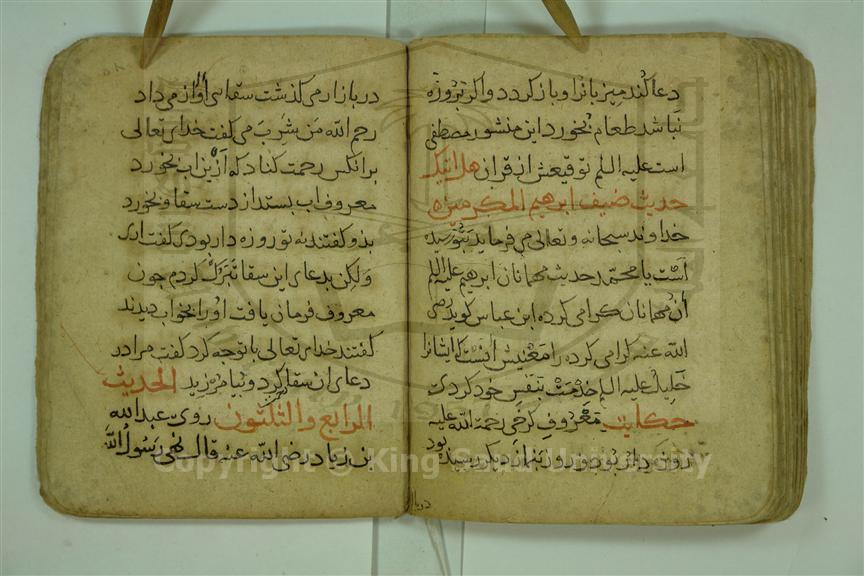 دعا کند میزبانرا و باز کردد واکر تو روزه
نباشد طعام بخورد این منشور مصطفی
است علیه السلم توقیعش از قران هل اتیک
حدیث ضیف ابرهیم المکرمین
خداوند سبحانه وتعالی می فرماید بتو رسیده
است یا محمد حدیث مهمانان ابرهیم علیه السلم
آن مهمانان کرامی کرده ابن عباس کوید رضی
الله عنه کرامی کرده را معنیش آنست که ایشانرا
خلیل علیه السلم خدمت بنفس خود کردی
حکایت معروف کرخی رحمة الله علیه
روزه دار بود و روز بنماز دیکر رسیده بود
دربا
در بازار می کذشت سقاسی آواز می داد
رحم الله من شرب می کفت خدای تعالی
برانکس رحمت کناد که ازین اب بخورد
معروف اب بستد از دست سقا و بخورد
بدو کفتند نه تو روزه دار بودی کفت اری
ولکن بدعای این سقا تبرک کردم چون
معروف فرمان یافت اورا بخواب دیدند
کفتند خدای تعالی با تو چه کرد کفت مرا در
دعای ان سقا کرد و بیامرزید الحدیث
الرابع والثلثون روی عبد الله
بن زیاد رضی الله عنه قال نهی رسول الله
Copyright © King Saud University